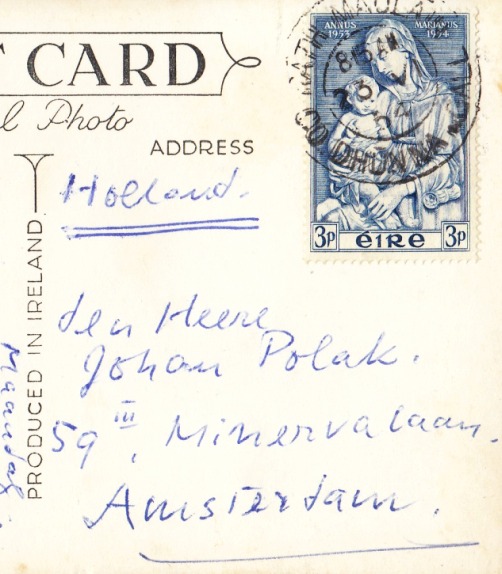 CARD
l Photo
ADDRESS
PRODUCED IN IRELAND
ANNUS 1953
MARIANUS 1954
3p ÉIRE 3p
8 15 AM
Holland.
den Heere
Johan Polak.
59 III, Minervalaan.
Amsterdam.
Maandag